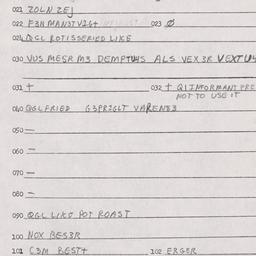 021 ZOLN ZEJ
022 F3H MAN3TVIG+ 023 ∅
024 QGL ROTISSERIED LIKE
030 VUS MESR M3 DEMPTUHS ALS VEX 3R VEXTU
031 + 032 + Q1 INFORMANT PRE
NOT TO USE IT
040 QGLFRIED G3PRIGLT VAREN83
050 —
060 —
070 —
080 —
090 QGL LIKE POT ROAST
100 NOX BES3R
101 C3M BEST+ 102 ERGER